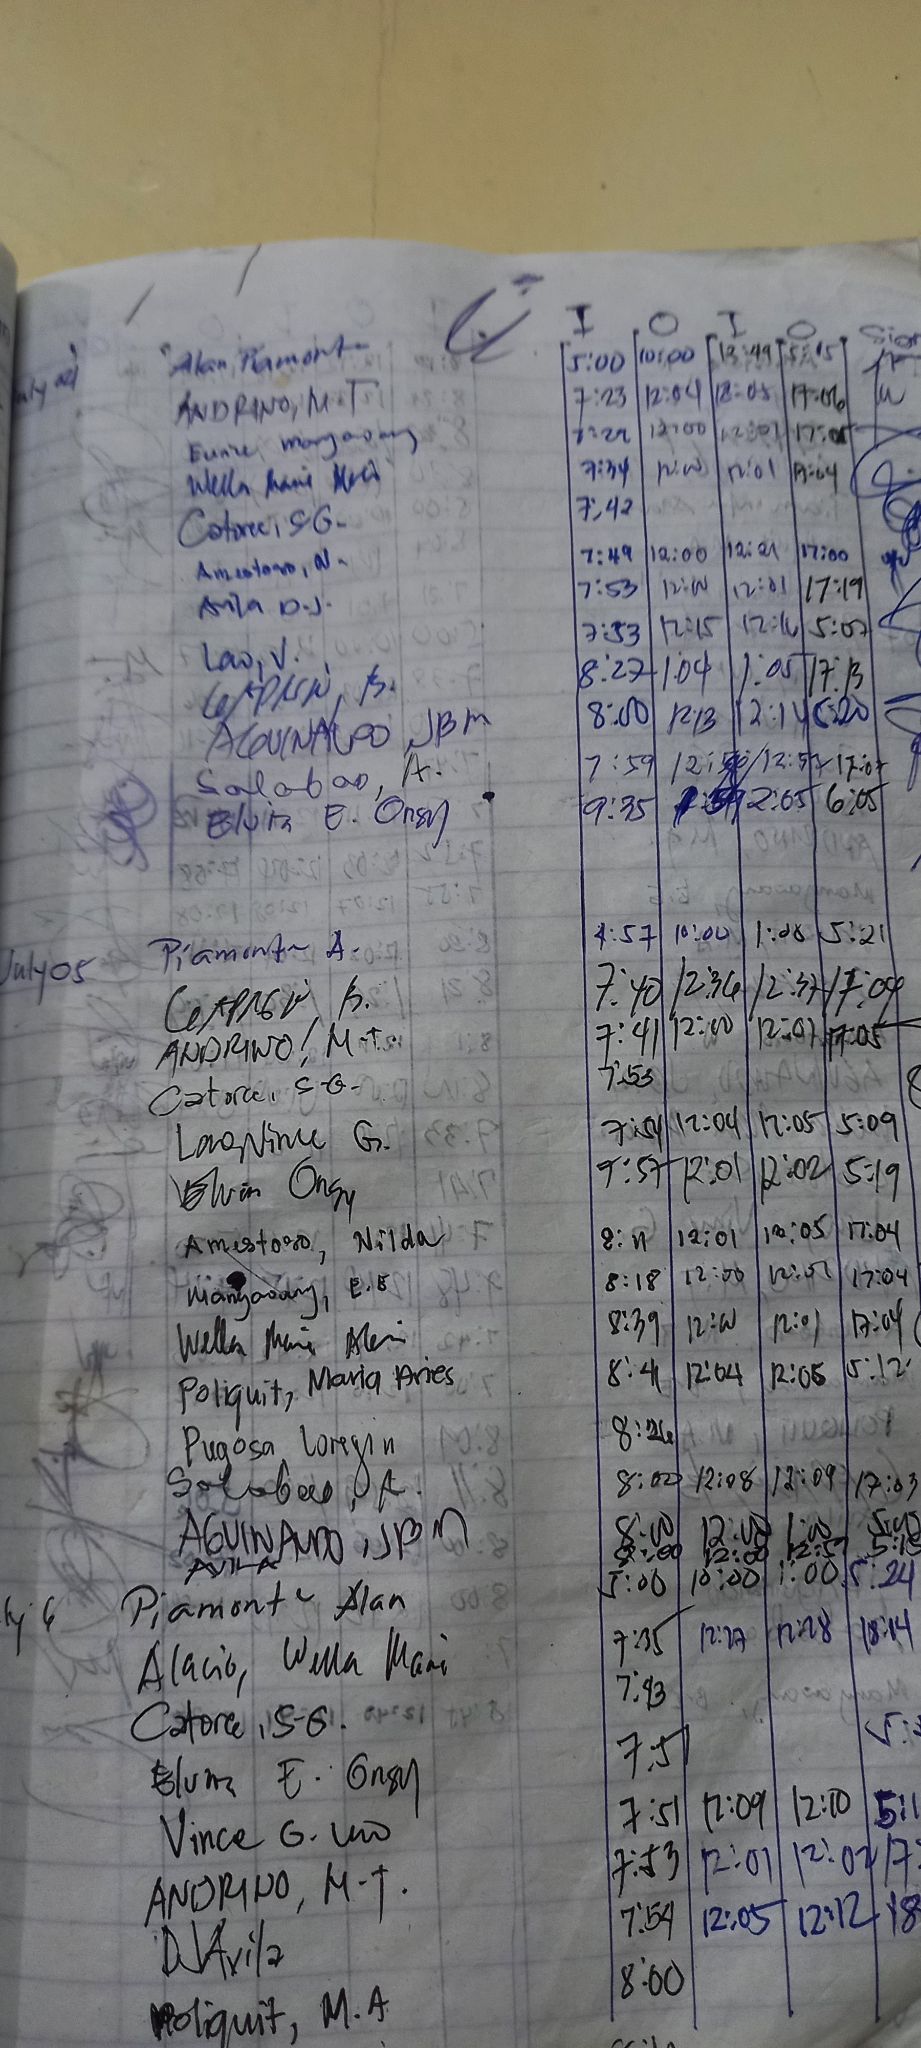 I O I O
Alan Piamonte 5:00 10:00 5:15
ANDRINO, M.T 7:23 12:04 17:06
Eunice mangaoang 12:00 17:05
Wella Marie 7:34 12:00 12:01 17:04
Catorce, S G. 7:42
Amestoso, N. 7:49 12:00 12:21 17:00
Avila D.J. 7:53 12:00 12:01 17:19
Lao, V. 7:53 12:15 12:16 5:07
B. 8:27 1:04 1:05 17:13
AGUINALDO, JBM 8:00 12:13 12:14 5:20
Salabao, A. 7:59 12:57 17:07
Elvira E. Ongy 9:35 2:05 6:05
July 05 Piamonte A. 4:57 10:00 1:00 5:21
B. 7:40 12:36 12:37 17:04
ANDRINO, M.T. 7:41 12:00 12:01 17:05
Catorce, S-G. 7:53
Lao, Vince G. 7:54 12:04 12:05 5:09
Ongy 7:57 12:01 12:02 5:19
Amestoso, Nilda 8:11 12:01 12:05 17:04
Mangaoang, E.B 8:18 12:00 12:01 17:04
Wella Marie 8:39 12:00 12:01 17:04
Poliquit, Maria Aries 8:41 12:04 12:05 5:12
Pugosa Loregin 8:26
Salabao, A. 8:00 12:08 12:09 17:03
AGUINALDO, JBM 8:00 12:00 1:00 5:00
AVILA 12:00 12:57
6 Piamonte Alan 5:00 10:00 1:00 5:24
Alacio, Wella Marie 7:35 12:27 12:28 18:14
Catorce, S-G. 7:43
Elvira E. Ongy 7:51
Vince G. Lao 7:51 12:09 12:10 5:1
ANDRINO, M.T. 7:53 12:01 12:02 17:
DJ Avila 7:54 12:05 12:12 18
Poliquit, M.A 8:00